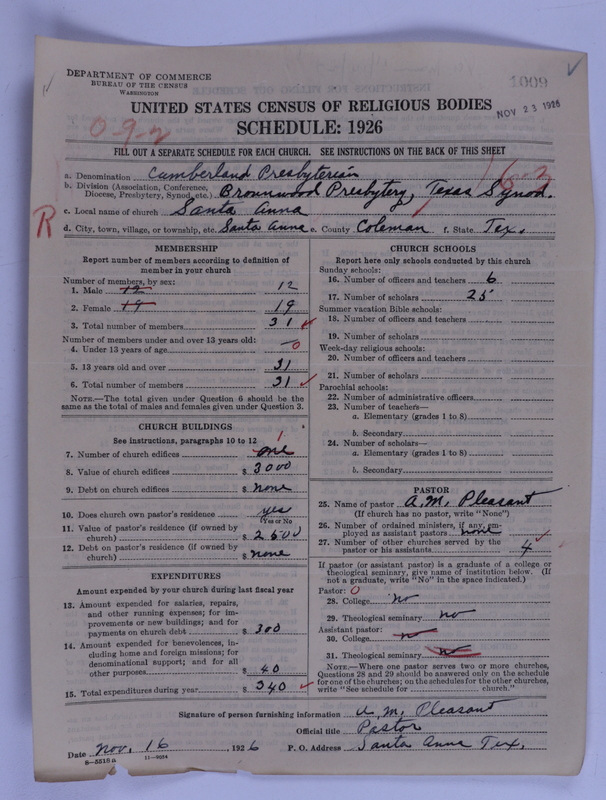 DEPARTMENT OF COMMERCE
BUREAU OF THE CENSUS
WASHINGTON
1009
NOV 23 1926
UNITED STATES CENSUS OF RELIGIOUS BODIES
SCHEDULE: 1926
09-2
FILL OUT A SEPARATE SCHEDULE FOR EACH CHURCH. SEE INSTRUCTIONS ON THE BACK OF THIS SHEET
a. Denomination Cumberland Presbyterian
b. Division (Association, Conference, Diocese, Presbytery, Synod, etc.) Brownwood Presbytery, Texas Synod.
R
c. Local name of church Santa Anna
d. City, town, village, or township, etc. Santa Anna e. County Coleman f. State Tex.
MEMBERSHIP
Report number of members according to definition of
member in your church
Number of members, by sex:
1. Male 12 12
2. Female 19 19
3. Total number of members 31
Number of members under and over 13 years old:
4. Under 13 years of age 0
5. 13 years old and over 31
6. Total number of members 31
NOTE.—The total given under Question 6 should be
same as the total of males and females given under Question 3.
CHURCH BUILDINGS
See instructions, paragraphs 10 to 12
7. Number of church edifices one 1
8. Value of church edifices $ 3000
9. Debt on church edifices $ none
10. Does church own pastor's residence yes
(Yes or No
11. Value of pastor's residence (if owned by
church) $ 2500
12. Debt on pastor's residence (if owned by
church) $ none
EXPENDITURES
Amount expended by your church during last fiscal year
13. Amount expended for salaries, repairs,
and other running expenses; for im-
provements or new buildings; and for
payments on church debt $ 300
14. Amount expended for benevolences, in-
cluding home and foreign missions; for
denominational support; and for all
other purposes $ 40
15. Total expenditures during year $ 340
CHURCH SCHOOLS
Report here only schools conducted by this church
Sunday schools:
16. Number of officers and teachers 6
17. Number of scholars 25
Summer vacation Bible schools:
18. Number of officers and teachers
19. Number of scholars
Week-day religious schools:
20. Number of officers and teachers
21. Number of scholars
Parochial schools:
22. Number of administrative officers
23. Number of teachers—
a. Elementary (grades 1 to 8)
b. Secondary
24. Number of scholars—
a. Elementary (grades 1 to 8)
b. Secondary
PASTOR
25. Name of pastor A. M. Pleasant
(If church has no pastor, write "None")
26. Number of ordained ministers, if any, em-
ployed as assistant pastors none
27. Number of other churches served by the
pastor or his assistants 4
If pastor (or assistant pastor) is a graduate of a college or
theological seminary, give name of institution below. (If
not a graduate, write "No" in the space indicated.)
Pastor: 0
28. College no
29. Theological seminary no
Assistant pastor:
30. College no
31. Theological seminary no
NOTE.—Where one pastor serves two or more churches,
Questions 28 and 29 should be answered only on the schedule
for one of the churches; on the schedules for the other churches,
write "See schedule for church."
Signature of person furnishing information A. M. Pleasant
Official title Pastor
Date Nov. 16, 1926 P. O. Address Santa Anna Tex.
8-5518a 11-9054